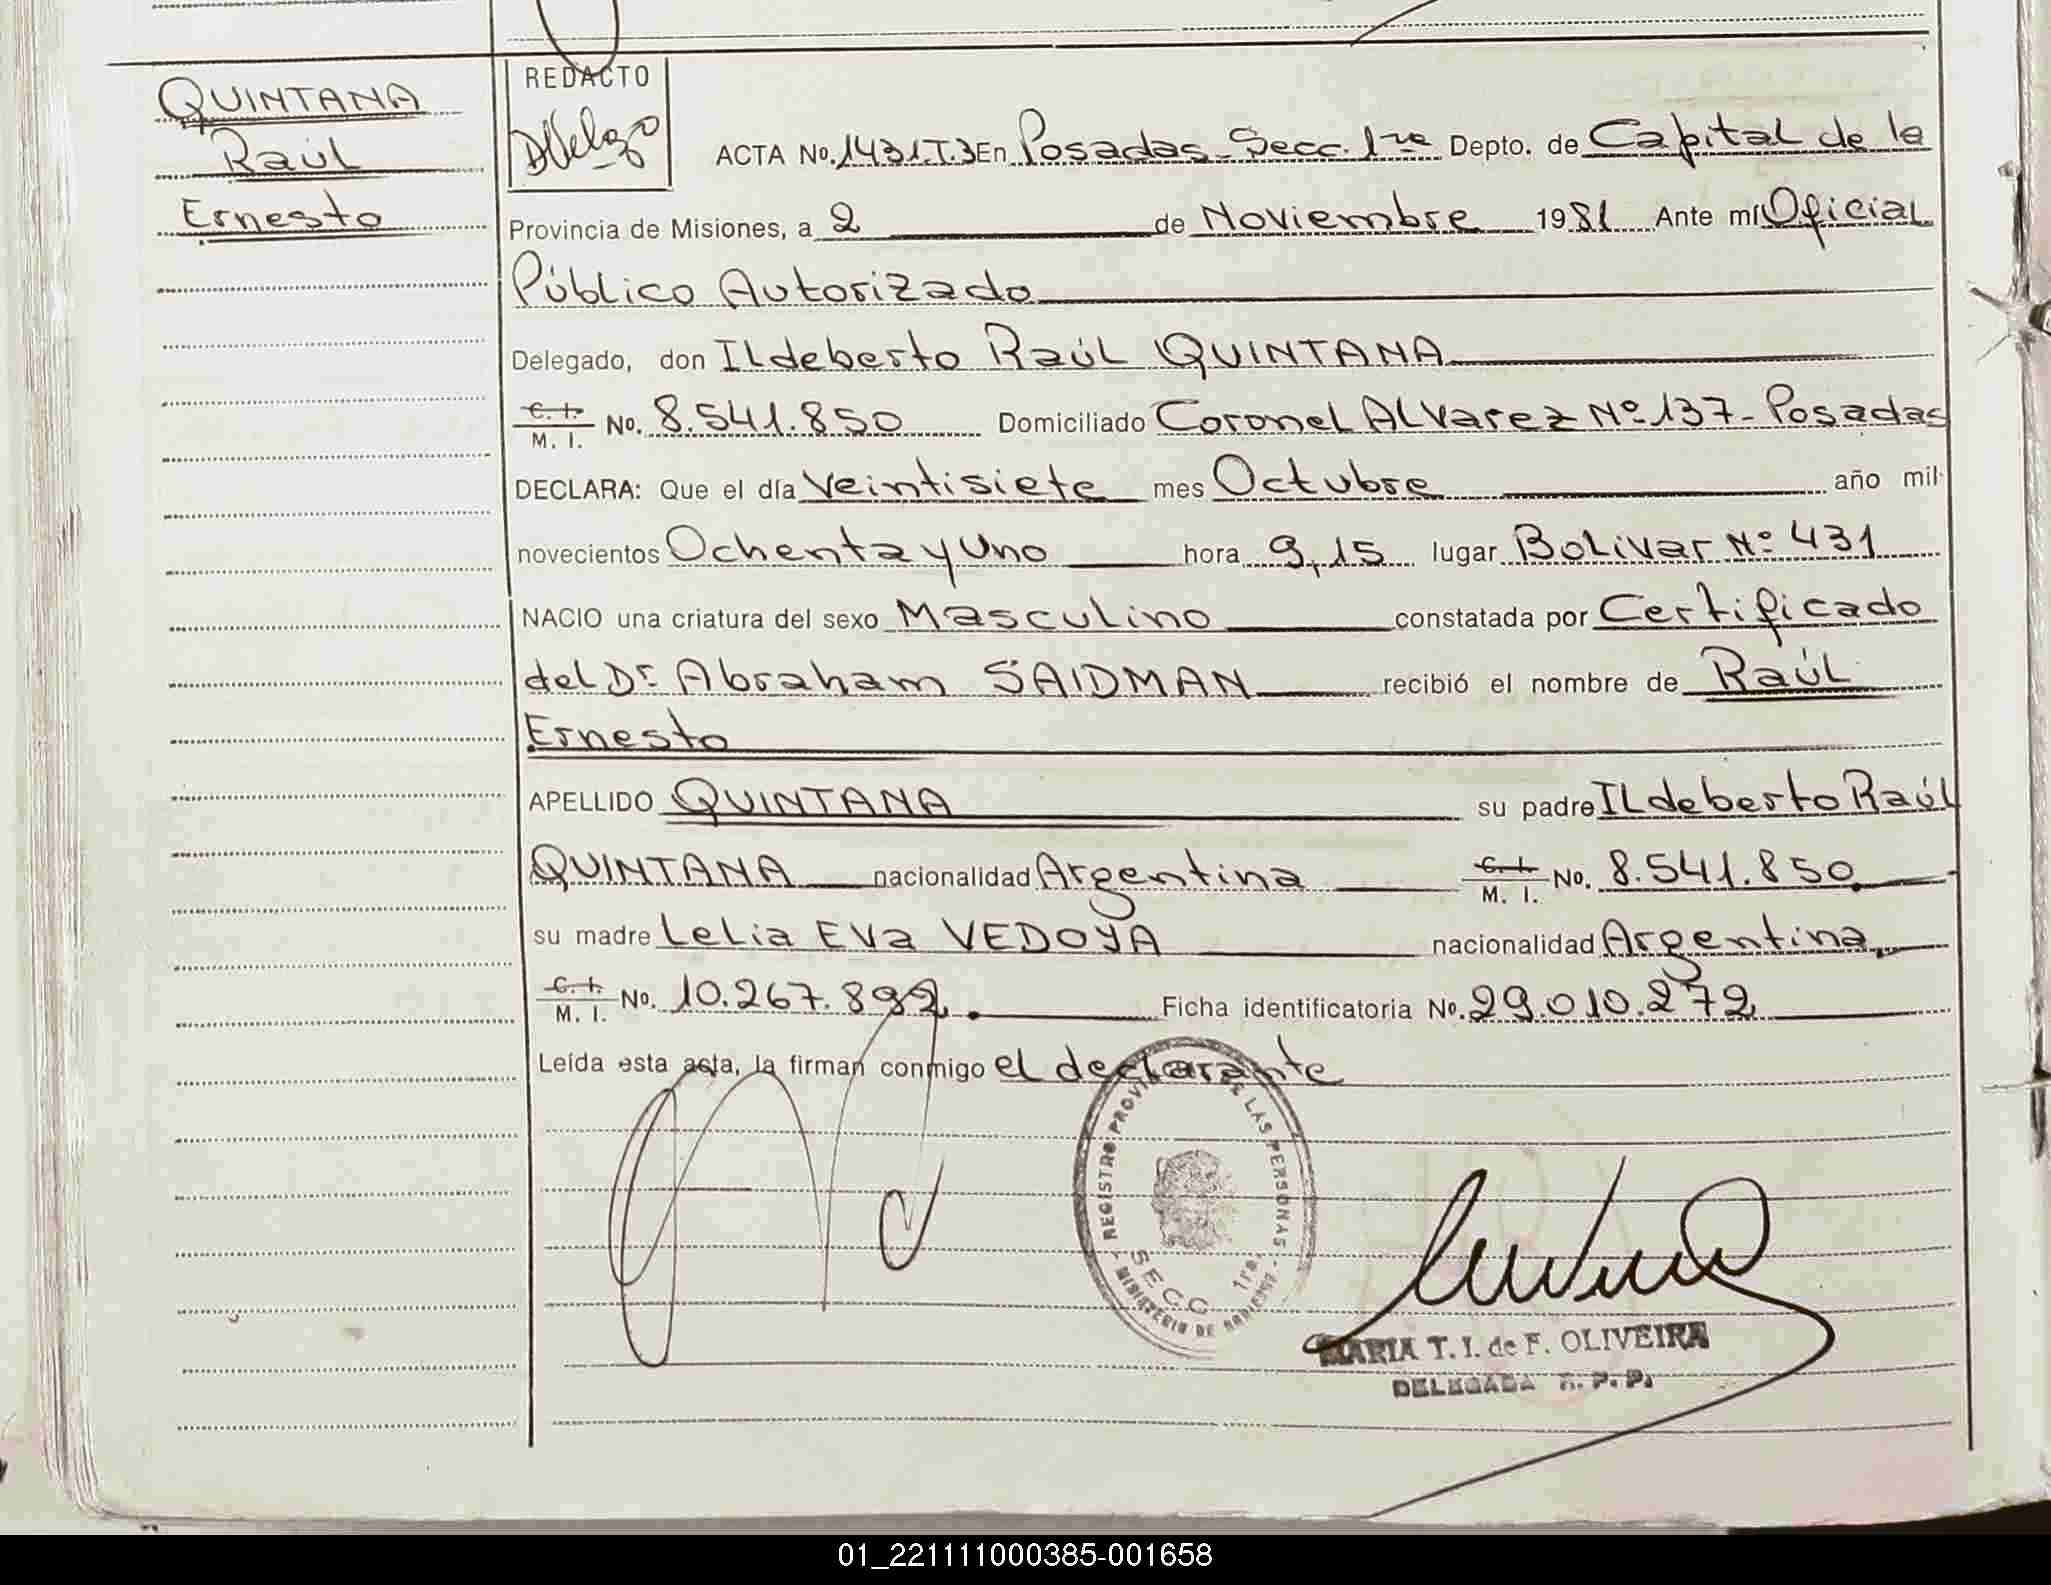 QUINTANA
Raúl
Ernesto
REDACTO
ACTA No. 1431 T.3 En Posadas - Secc. 1ra Depto. de Capital de la
Provincia de Misiones, a 2 de Noviembre 1981 Ante mí Oficial
Público Autorizado
Delegado, don Ildeberto Raúl QUINTANA
C. I.
M. I. No. 8.541.850 Domiciliado Coronel Alvarez Nº 137 - Posadas
DECLARA: Que el día veintisiete mes Octubre año mil
novecientos Ochenta y Uno hora 9,15 lugar Bolivar Nº 431
NACIO una criatura del sexo Masculino constatada por Certificado
del Dr. Abraham SAIDMAN recibió el nombre de Raúl
Ernesto
APELLIDO QUINTANA su padre Ildeberto Raúl
QUINTANA nacionalidad Argentina C. I.
M. I. No. 8.541.850
su madre Lelia Eva VEDOYA nacionalidad Argentina
C. I.
M. I. No. 10.267.892. Ficha identificatoria No. 29.010.272
Leída esta acta, la firman conmigo el declarante
REGISTRO PROVI DE LAS PERSONAS
SECC 1ra.
MINISTERIO DE GOBIERNO
MARIA T. I. de F. OLIVEIRA
DELEGADA R. P. P.
01_221111000385-001658